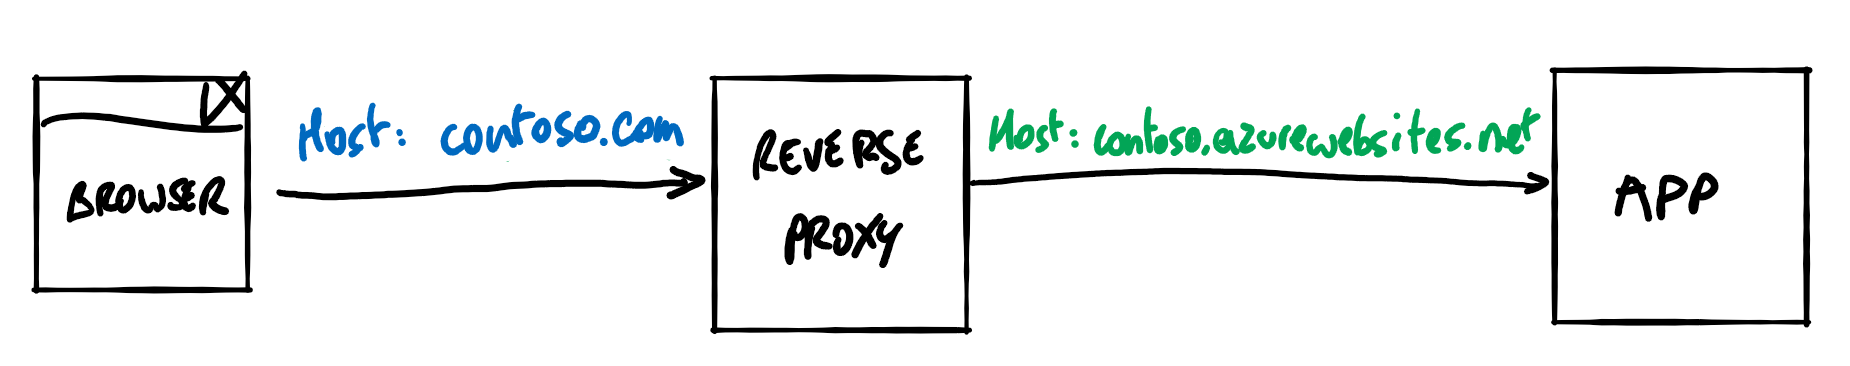 BROWSER
Host: contoso.com
REVERSE
PROXY
Host: contoso.azurewebsites.net
APP